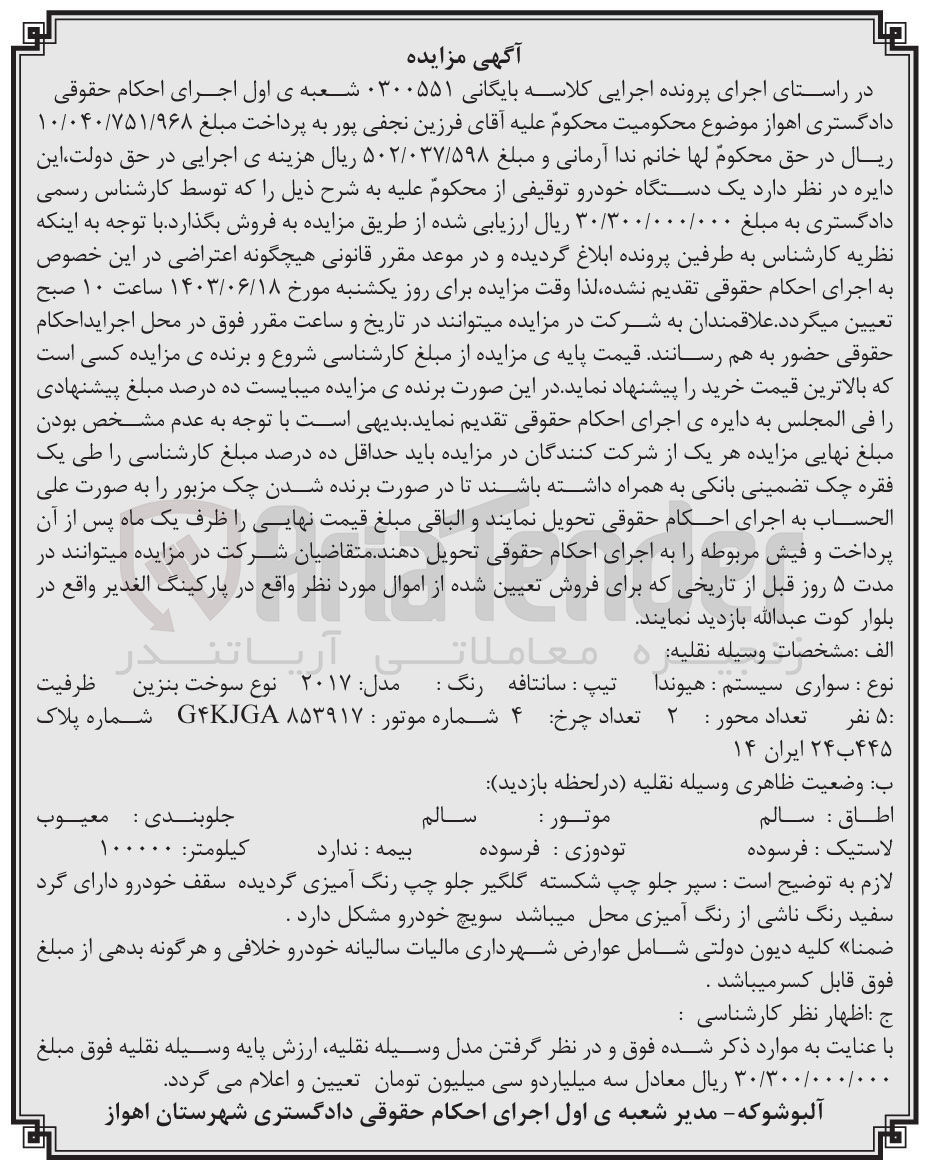 آگهی مزایده
در راستای اجرای پرونده اجرایی کلاسه بایگانی ۰۳۰۰۵۵۱ شعبه ی اول اجرای احکام حقوقی
دادگستری اهواز موضوع محکومیت محکومٌ علیه آقای فرزین نجفی پور به پرداخت مبلغ ۱۰/۰۴۰/۷۵۱/۹۶۸
ریال در حق محکومٌ لها خانم ندا آرمانی و مبلغ ۵۰۲/۰۳۷/۵۹۸ ریال هزینه ی اجرایی در حق دولت،این
دایره در نظر دارد یک دستگاه خودرو توقیفی از محکومٌ علیه به شرح ذیل را که توسط کارشناس رسمی
دادگستری به مبلغ ۳۰/۳۰۰/۰۰۰/۰۰۰ ریال ارزیابی شده از طریق مزایده به فروش بگذارد.با توجه به اینکه
نظریه کارشناس به طرفین پرونده ابلاغ گردیده و در موعد مقرر قانونی هیچگونه اعتراضی در این خصوص
به اجرای احکام حقوقی تقدیم نشده،لذا وقت مزایده برای روز یکشنبه مورخ ۱۴۰۳/۰۶/۱۸ ساعت ۱۰ صبح
تعیین میگردد.علاقمندان به شرکت در مزایده میتوانند در تاریخ و ساعت مقرر فوق در محل اجرایداحکام
حقوقی حضور به هم رسانند. قیمت پایه ی مزایده از مبلغ کارشناسی شروع و برنده ی مزایده کسی است
که بالاترین قیمت خرید را پیشنهاد نماید.در این صورت برنده ی مزایده میبایست ده درصد مبلغ پیشنهادی
را فی المجلس به دایره ی اجرای احکام حقوقی تقدیم نماید.بدیهی است با توجه به عدم مشخص بودن
مبلغ نهایی مزایده هر یک از شرکت کنندگان در مزایده باید حداقل ده درصد مبلغ کارشناسی را طی یک
فقره چک تضمینی بانکی به همراه داشته باشند تا در صورت برنده شدن چک مزبور را به صورت علی
الحساب به اجرای احکام حقوقی تحویل نمایند و الباقی مبلغ قیمت نهایی را ظرف یک ماه پس از آن
پرداخت و فیش مربوطه را به اجرای احکام حقوقی تحویل دهند.متقاضیان شرکت در مزایده میتوانند در
مدت ۵ روز قبل از تاریخی که برای فروش تعیین شده از اموال مورد نظر واقع در پارکینگ الغدیر واقع در
بلوار کوت عبدالله بازدید نمایند.
AriaTender
زنجیره معاملاتی آریاتندر
الف :مشخصات وسیله نقلیه:
نوع : سواری سیستم : هیوندا تیپ : سانتافه رنگ : مدل: ۲۰۱۷ نوع سوخت بنزین ظرفیت
:۵ نفر تعداد محور : ۲ تعداد چرخ: ۴ شماره موتور : G۴KJGA ۸۵۳۹۱۷ شماره پلاک
۴۴۵ب۲۴ ایران ۱۴
ب: وضعیت ظاهری وسیله نقلیه (درلحظه بازدید):
اطاق : سالم موتور : سالم جلوبندی : معیوب
لاستیک : فرسوده تودوزی : فرسوده بیمه : ندارد کیلومتر: ۱۰۰۰۰۰
لازم به توضیح است : سپر جلو چپ شکسته گلگیر جلو چپ رنگ آمیزی گردیده سقف خودرو دارای گرد
سفید رنگ ناشی از رنگ آمیزی محل میباشد سویچ خودرو مشکل دارد .
ضمنا» کلیه دیون دولتی شامل عوارض شهرداری مالیات سالیانه خودرو خلافی و هرگونه بدهی از مبلغ
فوق قابل کسرمیباشد .
ج :اظهار نظر کارشناسی :
با عنایت به موارد ذکر شده فوق و در نظر گرفتن مدل وسیله نقلیه، ارزش پایه وسیله نقلیه فوق مبلغ
۳۰/۳۰۰/۰۰۰/۰۰۰ ریال معادل سه میلیاردو سی میلیون تومان تعیین و اعلام می گردد.
آلبوشوکه- مدیر شعبه ی اول اجرای احکام حقوقی دادگستری شهرستان اهواز